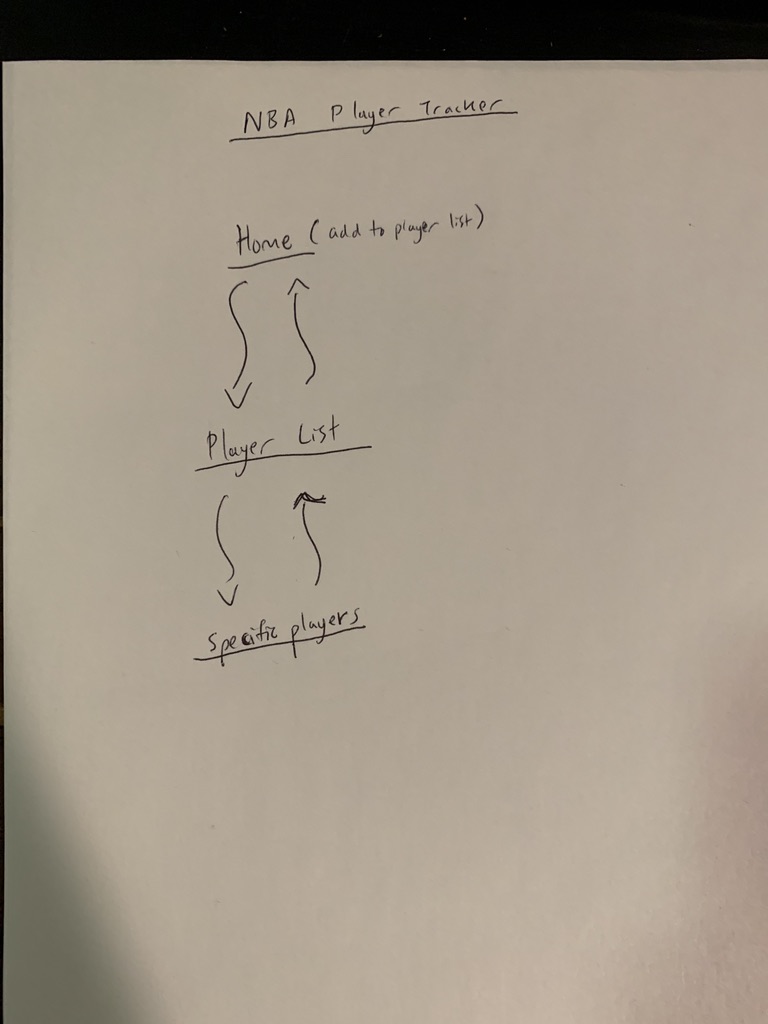 NBA Player Tracker
Home (add to player list)
Player List
Specific players